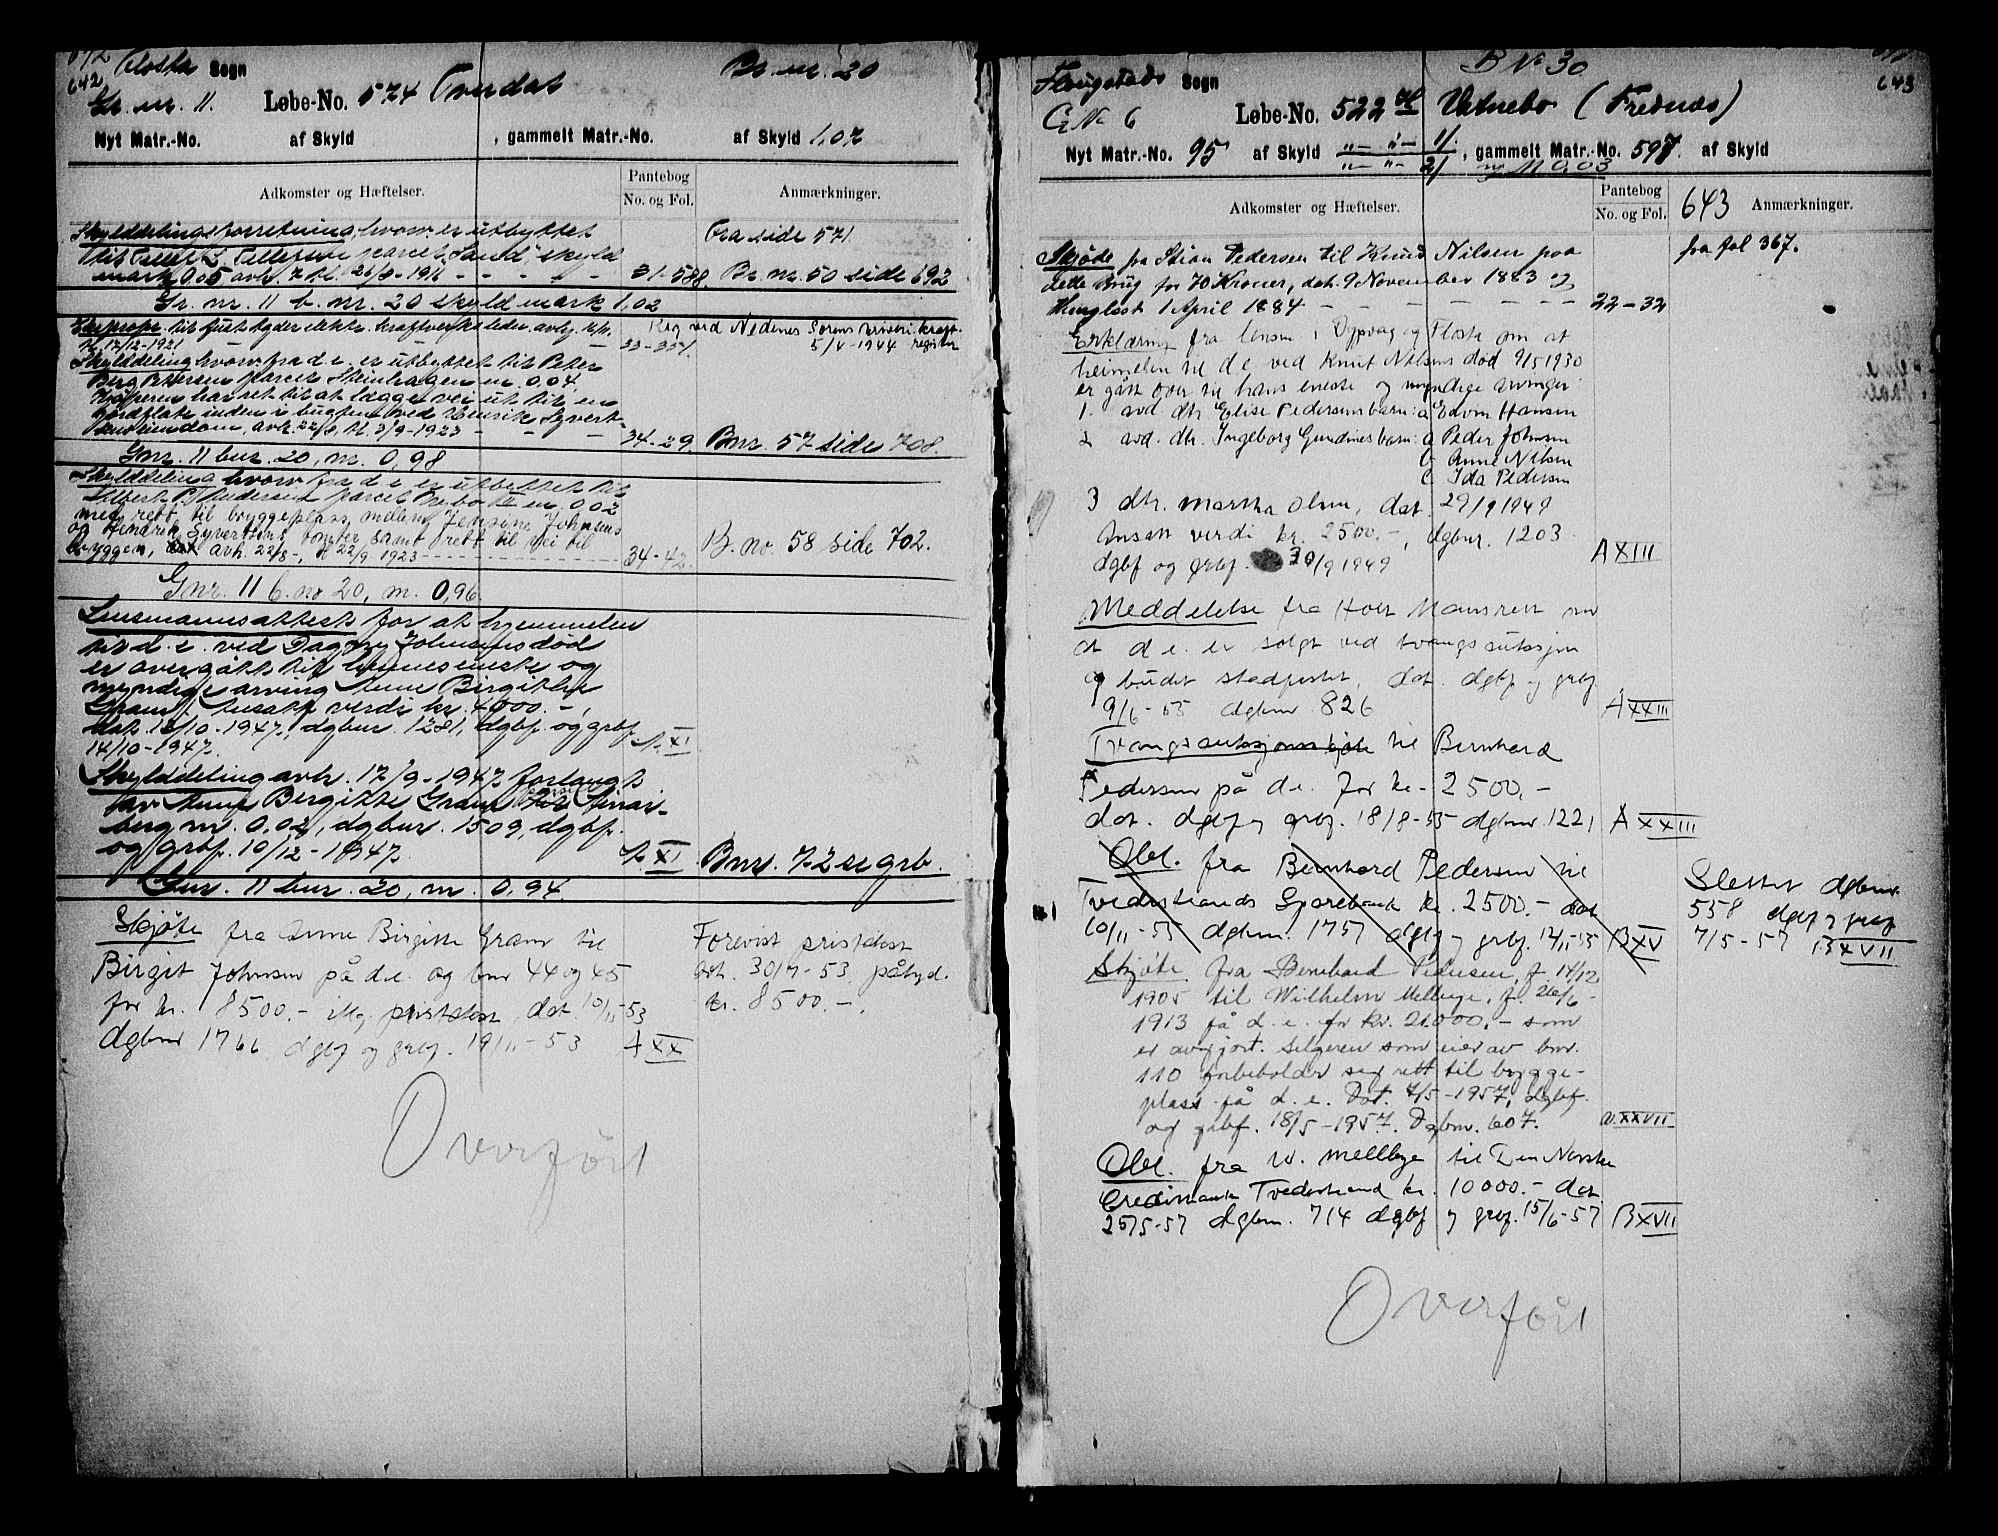 642 Flosta Sogn Br. nr. 20
Gr. nr. 11. Løbe-No. 574
Nyt Matr.-No. af Skyld , gammelt Matr.-No. af Skyld 1,07
Adkomster og Hæftelser. Pantebog No. og Fol. Anmærkninger.
Skylddelingsforretning, hvorved er utbyttet Fra side 571
til L. Tellefsen parcel "Sand" skyld
mark 0.05 avh. 7 tl. 26/9-1916 31-588. Br. nr. 50 side 692
Gr. nr. 11 b. nr. 20 skyld mark 1,02
Ekspropr. til Aust Agder elektr. kraftverks leder, avhj. Reg. ved Nedenes Sorenskriveri kraft-
tl. 12/12-1921 33-351. 5/4-1944 register
Skylddeling hvorved fra d. e. er utbyttet til Peter
Berg Pettersen parcel Steinhagen en 0,04
Kjøperen har ret til at lægge vei ut til en
inden i bugten ved Henrik Syvert-
sens eiendom, avh. 22/8, tl. 3/9-1923 34-29. Bnr. 57 side 708.
Gnr. 11 bnr. 20, m. 0,98
Skylddeling hvorved fra d. e. er utbyttet til
Pedersen parcel Nybo II en 0,02
med rett til bryggeplass mellem Jensine Johnsens
og Hendrik Syvertsens tomter samt rett til vei til
bryggen, avh. 22/8-, tl 22/9-1923 34-42. B. no. 58 side 702.
Gnr. 11 b. no 20, m. 0,96.
Lensmannsattest for at hjemmelen
til d. e. ved Dagny Johnsens død
er overgått til hennes eneste og
myndige arving Anne Birgitte
Gram. Ansatt verdi kr. 4000.-,
dat. 13/10-1947, dgbnr. 1281, dgbf. og grbf.
14/10-1947. A. XI
Skylddeling avh. 17/9-1947 forlangt
av Anne Birgitte Gram
berg m. 0,02, dgbnr. 1509, dgbf.
og grbf. 10/12-1947. A. XI Bnr. 72 se grb.
Gnr. 11 bnr. 20, m. 0,94.
Skjøte fra Anne Birgitte Gram til Forevist pristakst
Birgit Johnsen på d.e. og bnr 44 og 45 dat. 30/7-53 pålyd.
for kr. 8500.- iflg. pristakst, dat. 10/11-53 kr. 8500.-.
dgbnr 1766 dgbf og grbf. 19/11-53 A XX
Overført
643
B No 30
Flaugstads Sogn
G No 6 Løbe-No. 522 Vatnebo (Frednæs)
Nyt Matr.-No. 95 af Skyld , gammelt Matr.-No. 597. af Skyld
ny M 0,03
Adkomster og Hæftelser. Pantebog No. og Fol. 643 Anmærkninger.
Skjøde fra Stian Pedersen til Knud Nilsen paa fra fol 367.
dette Brug for 70 Kroner, dat. 9 November 1883 og
thinglæst 1 April 1884 22-32
Erklæring fra lensm. i Dypvåg og Flosta om at
heimelen til d e ved Knut Nilsens død 9/5 1930
er gått over til hans eneste og myndige arvinger:
1. avd. dtr Elise Pedersens barn: a Edvin Hansen
2 avd. dtr. Ingeborg Gundines barn: a Peder Johnsen
b Anne Nilsen
c Ida Pedersen
3 dtr. Martha Olsen, dat 29/9 1949
Ansatt verdi kr. 2500.-, dgbnr. 1203.
dgbf og grbf. 30/9 1949 A XIII
Meddelelse fra Holt Mansrett om
at d e. er solgt ved tvangsauksjon
og budet stadfestet, dat. dgbf og grbf
9/6-55 dgbnr 826 A XXIII
Tvangsauksjonsskjøte til Bernhard
Pedersen på d.e. for kr- 2500.-
dat. dgbf og grbf. 18/8-55 dgbnr. 1221 A XXIII
Obl. fra Bernhard Pedersen til Slettet dgbnr.
Tvedestrands Sparebank kr. 2500.- dat 558 dgbf og grbf
10/11-55 dgbnr. 1757 dgbf og grbf. 12/11-55 B XV 7/5-57 B XVII
Skjøte fra Bernhard Pedersen, f. 14/12
1905 til Wilhelm Mellbye, f. 26/6-
1913 på d. e. for kr. 21.000.- som
er avgjort. Selgeren som eier av bnr.
110 forbeholder seg rett til brygge-
plass på d. e. Dat. 7/5-1957, dgbf.
og grbf. 18/5-1957. Dgbnr. 607. A. XXVII
Obl. fra W. Mellbye til Den Norske
Creditbank Tvedestrand kr. 10000.- dat
25/5-57 dgbnr. 714 dgbf og grbf. 15/6-57 B XVII
Overført